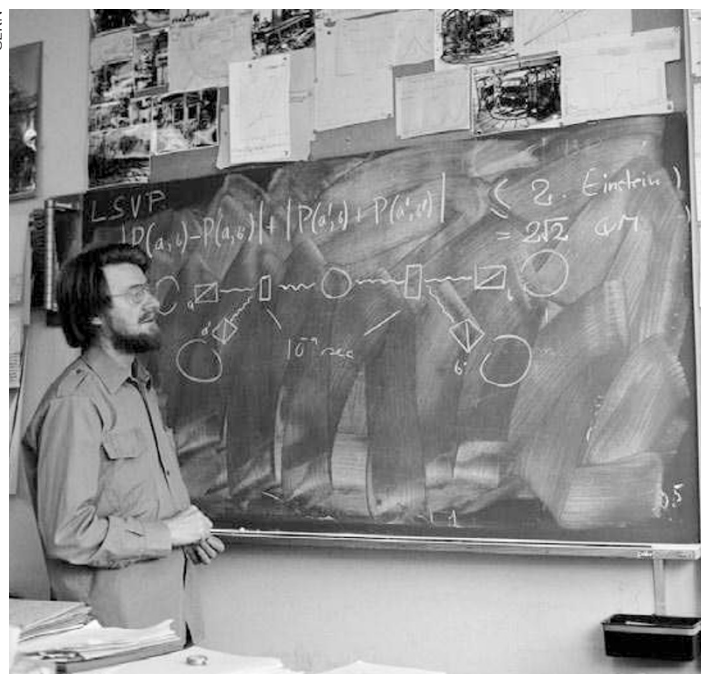 CERN
LSVP
|P(a,b)-P(a,b')|+|P(a',b)+P(a',b')| ≤ 2. Einstein
= 2√2 QM
a b
a' b'
10⁻⁹ sec